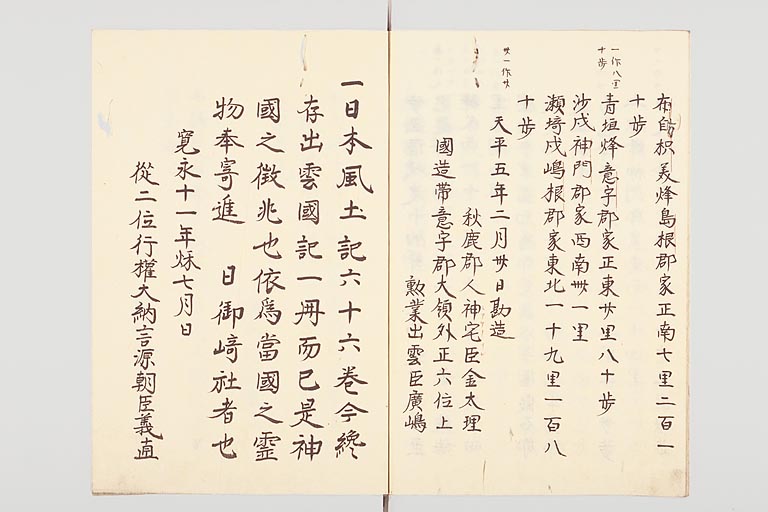 布自枳美烽島根郡家正南七里二百一
十歩
一作八里
十歩
青垣烽意宇郡家正東廿里八十歩
沙戍神門郡家西南卅一里
瀬埼戍嶋根郡家東北一十九里一百八
十歩
卅一作廿
天平五年二月卅日勘造
秋鹿郡人神宅臣金太理
國造帶意宇郡大領外正六位上
勲業出雲臣廣嶋
一日本風土記六十六卷今纔
存出雲國記一冊而已是神
國之徵兆也依爲當國之靈
物奉寄進　日御﨑社者也
寛永十一年秌七月日
從二位行權大納言源朝臣義直